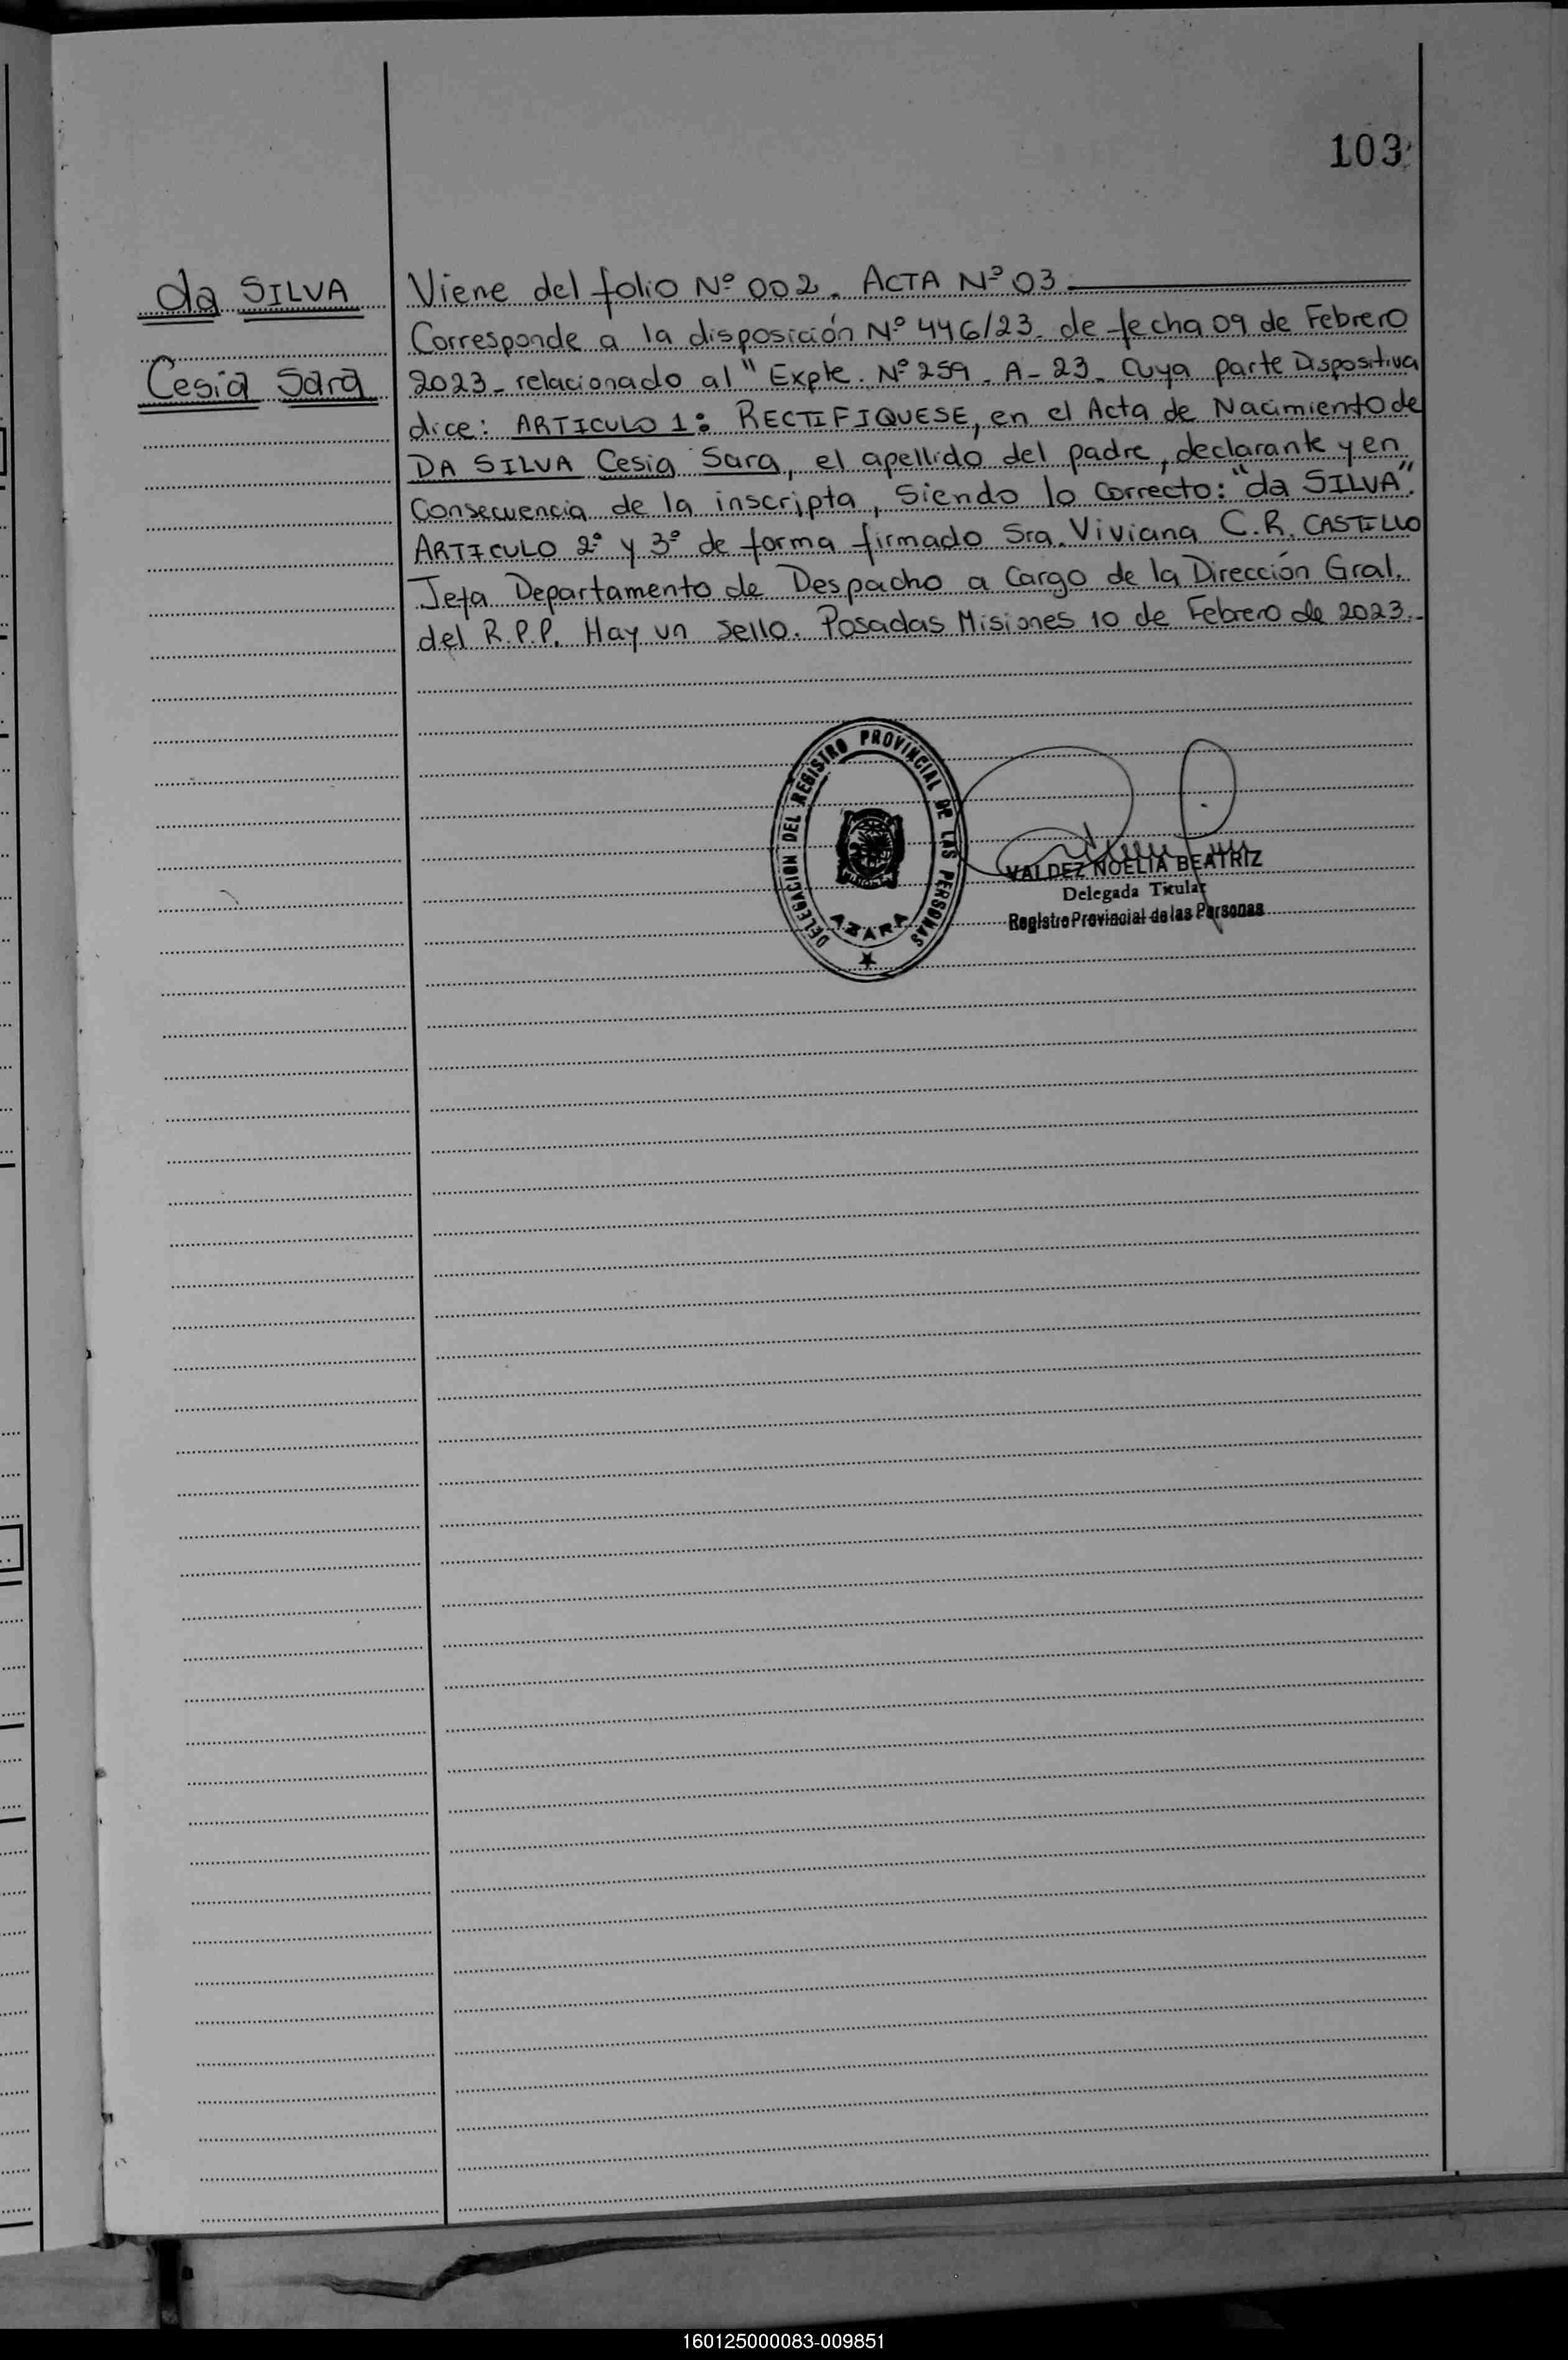 103
da SILVA
Cesia Sara
Viene del folio Nº 002. ACTA Nº 03
Corresponde a la disposición Nº 446/23. de fecha 09 de Febrero
2023. relacionado al " Expte. Nº 259. A-23. Cuya parte Dispositiva
dice: ARTICULO 1: RECTIFIQUESE, en el Acta de Nacimiento de
DA SILVA Cesia Sara, el apellido del padre, declarante y en
Consecuencia de la inscripta, Siendo lo Correcto: "da SILVA".
ARTICULO 2º y 3º de forma firmado Sra. Viviana C.R. CASTILLO
Jefa Departamento de Despacho a Cargo de la Dirección Gral.
del R.P.P. Hay un sello. Posadas Misiones 10 de Febrero de 2023.-
DELEGACION DEL REGISTRO PROVINCIAL DE LAS PERSONAS
AZARA
VALDEZ NOELIA BEATRIZ
Delegada Titular
Registro Provincial de las Personas
160125000083-009851